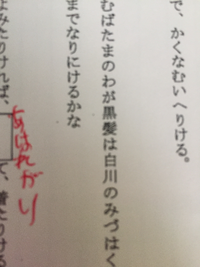 で、かくなむいへりける。
むばたまのわが黒髪は白川のみづはく
までなりにけるかな
よみたりければ、
あはれがり
て、着たりける